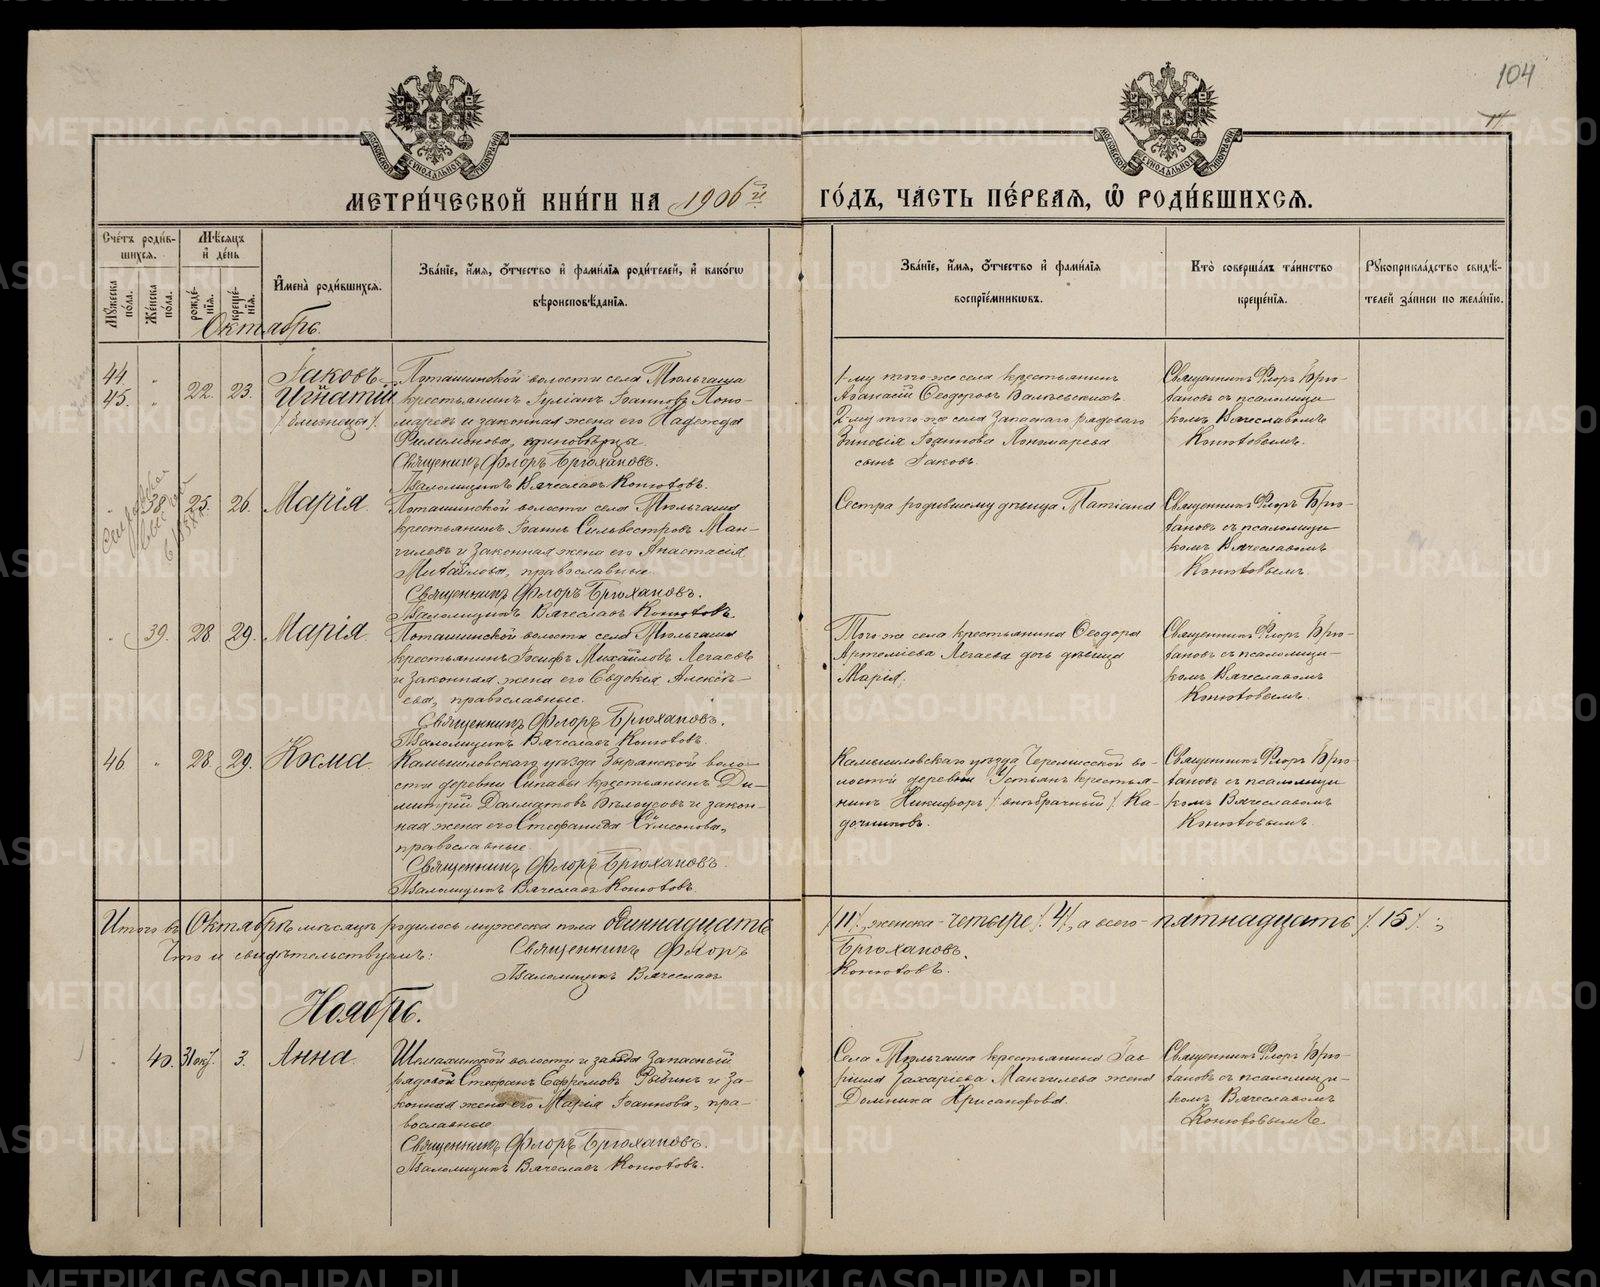 104
МОСКОВСКОЙ СѴНОДАЛЬНОЙ ТИПОГРАФІИ
МОСКОВСКОЙ СѴНОДАЛЬНОЙ ТИПОГРАФІИ
МЕТРИ́ЧЕСКОЙ КНИ́ГИ НА 1906й ГО́ДЪ, ЧА́СТЬ ПЕ́РВАЯ, Ѡ РОДИ́ВШИХСЯ.
Сче́тъ роди́в-
шихся.
Мꙋжеска по́ла.
Же́нска по́ла.
Мѣ́сяцъ
и҆ де́нь
рожде́-
нїѧ.
креще́-
нїѧ.
И҆мена̀ роди́вшихся.
Зва́нїе, и҆́мя, ѻ҆́тчество и҆ фами́лїя роди́телей, и҆ како́гѡ
вѣроисповѣ́данїя.
Зва́нїе, и҆́мя, ѻ҆́тчество и҆ фами́лїя
воспрїе́мникѡвъ.
Кто̀ соверша́лъ та́инство
креще́нїя.
Рꙋкоприкла́дство свидѣ́-
телей за́писи по жела́нїю.
Октябрь.
44. " 22. 23. Іаковъ
45. " Игнатій
/близнецы/.
Поташинской волости села Тюльгаша
крестьянинъ Іуліанъ Іоанновъ Поно-
маревъ и законная жена его Надежда
Филимонова, единовѣрцы.
Священникъ Флоръ Брюхановъ.
Псаломщикъ Вячеславъ Конюховъ.
1-му того-же села крестьянинъ
Аѳанасій Ѳеодоровъ
2-му того же села запаснаго рядоваго
Зиновія Іоаннова Пономарева
сынъ Іаковъ.
Священникъ Флоръ Брю-
хановъ съ псаломщи-
комъ Вячеславомъ
Конюховымъ.
" 38. 25. 26. Марія
Поташинской волости села Тюльгаша
крестьянинъ Іоаннъ Сильвестровъ Ман-
гилевъ и законная жена его Анастасія
Михайлова, православные.
Священникъ Флоръ Брюхановъ.
Псаломщикъ Вячеславъ Конюховъ.
Сестра родившему дѣвица Татіана
Священникъ Флоръ Брю-
хановъ съ псаломщи-
комъ Вячеславомъ
Конюховымъ.
" 39. 28 29. Марія.
Поташинской волости села Тюльгаша
крестьянинъ Іосифъ Михайловъ Легаевъ
и законная жена его Евдокія Алексѣ-
ева, православные.
Священникъ Флоръ Брюхановъ.
Псаломщикъ Вячеславъ Конюховъ.
Того же села крестьянина Ѳеодора
Артеміева Легаева дочь дѣвица
Марія.
Священникъ Флоръ Брю-
хановъ съ псаломщи-
комъ Вячеславомъ
Конюховымъ.
46 " 28. 29. Косма.
Камышловскаго уѣзда Зырянской воло-
сти деревни крестьянинъ Ди-
митрій Далматовъ Бѣлоусовъ и закон-
ная жена его Стефанида Сѵмеонова,
православные.
Священникъ Флоръ Брюхановъ.
Псаломщикъ Вячеславъ Конюховъ.
Камышловскаго уѣзда Черемисской во-
лости деревни Устьянъ крестья-
нинъ Никифоръ /внѣбрачный/ Ка-
дочниковъ.
Священникъ Флоръ Брю-
хановъ съ псаломщи-
комъ Вячеславомъ
Конюховымъ.
Итого въ Октябрѣ мѣсяцѣ родилось мужеска пола одиннадцать /11/, женска - четыре /4/, а всего - пятнадцать /15/.;
Что и свидѣтельствуемъ: Священникъ Флоръ Брюхановъ.
Псаломщикъ Вячеславъ Конюховъ.
Ноябрь.
" 40. 31 окт. 3. Анна.
Шемахинской волости и завода запасный
рядовой Стефанъ Ефремовъ Рыбинъ и за-
конная жена его Марія Іоаннова, пра-
вославные.
Священникъ Флоръ Брюхановъ.
Псаломщикъ Вячеславъ Конюховъ.
Села Тюльгаша крестьянина Гав-
ріила Захаріева Мангилева жена
Домника Хрисанфова.
Священникъ Флоръ Брю-
хановъ съ псаломщи-
комъ Вячеславомъ
Конюховымъ.
METRIKI.GASO-URAL.RU